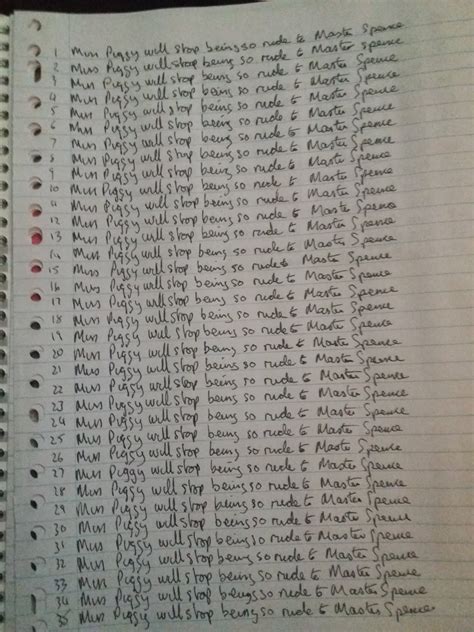 1 Miss Piggy will stop being so rude to Master Spence
2 Miss Piggy will stop being so rude to Master Spence
3 Miss Piggy will stop being so rude to Master Spence
4 Miss Piggy will stop being so rude to Master Spence
5 Miss Piggy will stop being so rude to Master Spence
6 Miss Piggy will stop being so rude to Master Spence
7 Miss Piggy will stop being so rude to Master Spence
8 Miss Piggy will stop being so rude to Master Spence
9 Miss Piggy will stop being so rude to Master Spence
10 Miss Piggy will stop being so rude to Master Spence
11 Miss Piggy will stop being so rude to Master Spence
12 Miss Piggy will stop being so rude to Master Spence
13 Miss Piggy will stop being so rude to Master Spence
14 Miss Piggy will stop being so rude to Master Spence
15 Miss Piggy will stop being so rude to Master Spence
16 Miss Piggy will stop being so rude to Master Spence
17 Miss Piggy will stop being so rude to Master Spence
18 Miss Piggy will stop being so rude to Master Spence
19 Miss Piggy will stop being so rude to Master Spence
20 Miss Piggy will stop being so rude to Master Spence
21 Miss Piggy will stop being so rude to Master Spence
22 Miss Piggy will stop being so rude to Master Spence
23 Miss Piggy will stop being so rude to Master Spence
24 Miss Piggy will stop being so rude to Master Spence
25 Miss Piggy will stop being so rude to Master Spence
26 Miss Piggy will stop being so rude to Master Spence
27 Miss Piggy will stop being so rude to Master Spence
28 Miss Piggy will stop being so rude to Master Spence
29 Miss Piggy will stop being so rude to Master Spence
30 Miss Piggy will stop being so rude to Master Spence
31 Miss Piggy will stop being so rude to Master Spence
32 Miss Piggy will stop being so rude to Master Spence
33 Miss Piggy will stop being so rude to Master Spence
34 Miss Piggy will stop being so rude to Master Spence
35 Miss Piggy will stop being so rude to Master Spence